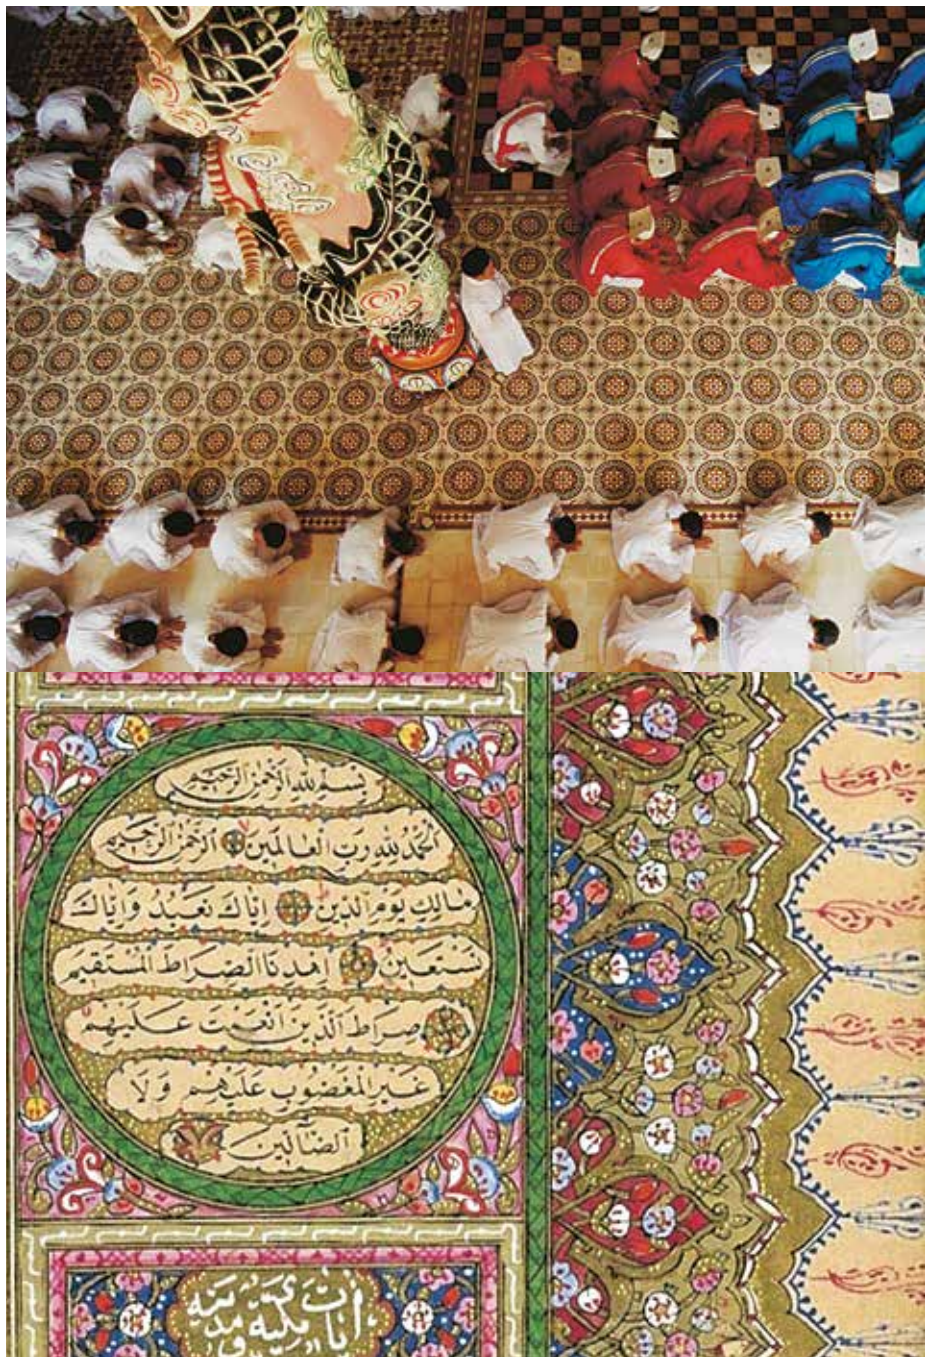 بِسْمِ اللّٰهِ الرَّحْمٰنِ الرَّحِيمِ
اَلْحَمْدُ لِلّٰهِ رَبِّ الْعَالَمِينَ اَلرَّحْمٰنِ الرَّحِيمِ
مَالِكِ يَوْمِ الدِّينِ اِيَّاكَ نَعْبُدُ وَاِيَّاكَ
نَسْتَعِينُ اِهْدِنَا الصِّرَاطَ الْمُسْتَقِيمَ
صِرَاطَ الَّذِينَ اَنْعَمْتَ عَلَيْهِمْ
غَيْرِ الْمَغْضُوبِ عَلَيْهِمْ وَلَا
الضَّالِّينَ